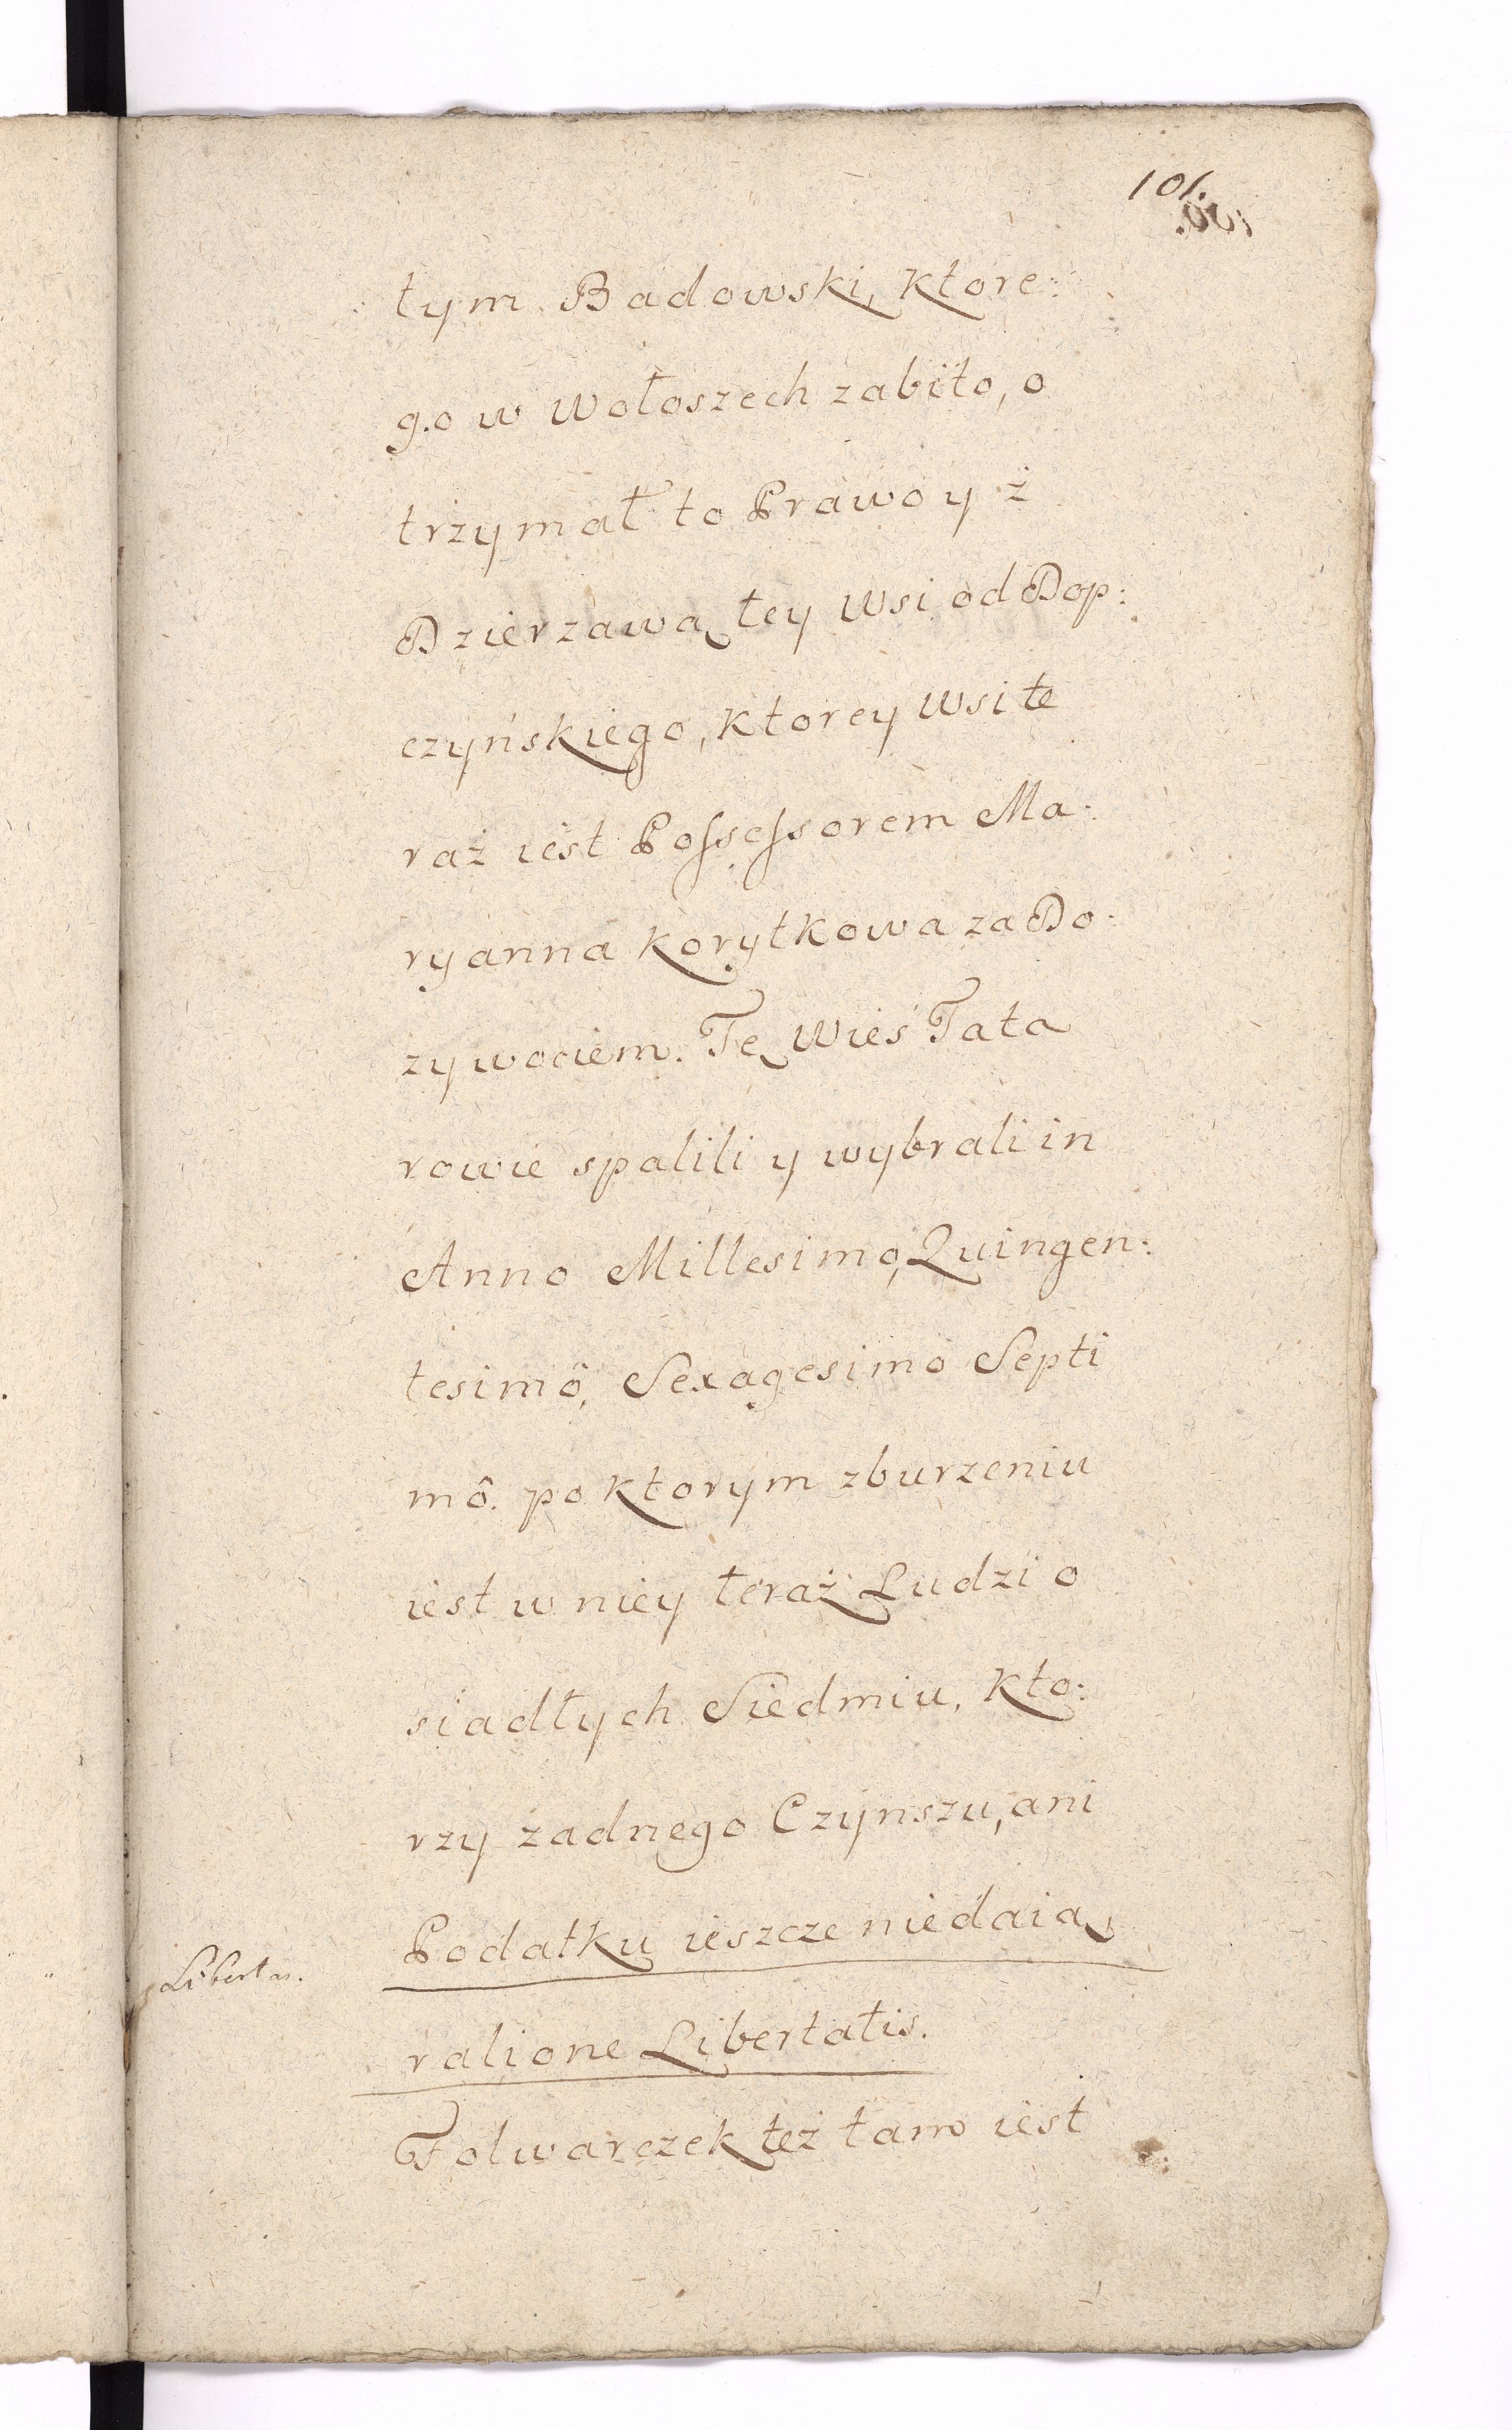 101.
tym Badowski, ktore:
go w Wołoszech zabito, o
trzymał to Prawo y ż
Dzierzawą tey Wsi od Dop:
czyńskiego, ktorey Wsi te
raż iest Possessorem Ma:
ryanna Korytkowa za Do:
zywociem. Tę Wieś Tata
rowie spalili y wybrali in
Anno Millesimo, Quingen:
tesimô, Sexagesimo Septi
mô. po ktorym zburzeniu
iest w niey teraż Ludzi o
siadłych Siedmiu, kto:
rzy żadnego Czynszu, ani
Libertas.
Podatku ieszcze niedaią
ratione Libertatis.
Folwarczek też tam iest